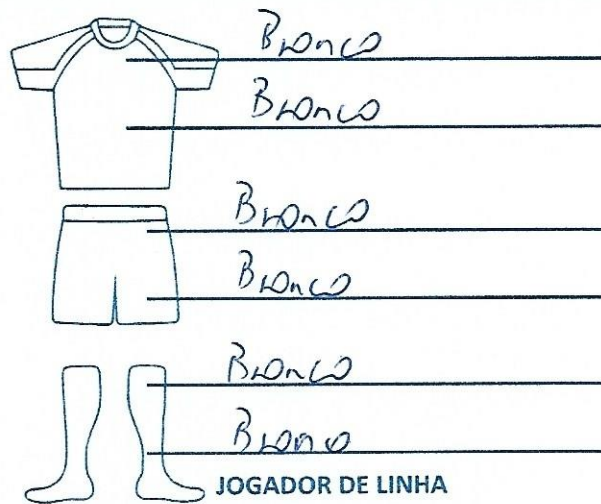 Branco
Branco
Branco
Branco
Branco
Branco
JOGADOR DE LINHA